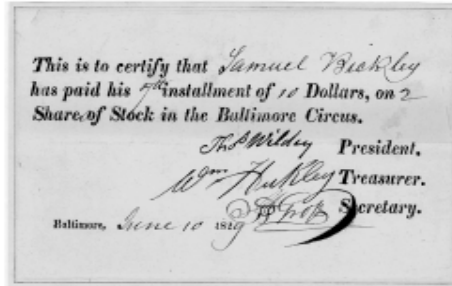 This is to certify that Samuel Bickley
has paid his 7th installment of 10 Dollars, on 2
Shares of Stock in the Baltimore Circus.
Thos Wildey President.
Wm Hinkley Treasurer.
Secretary.
Baltimore, June 10 1829